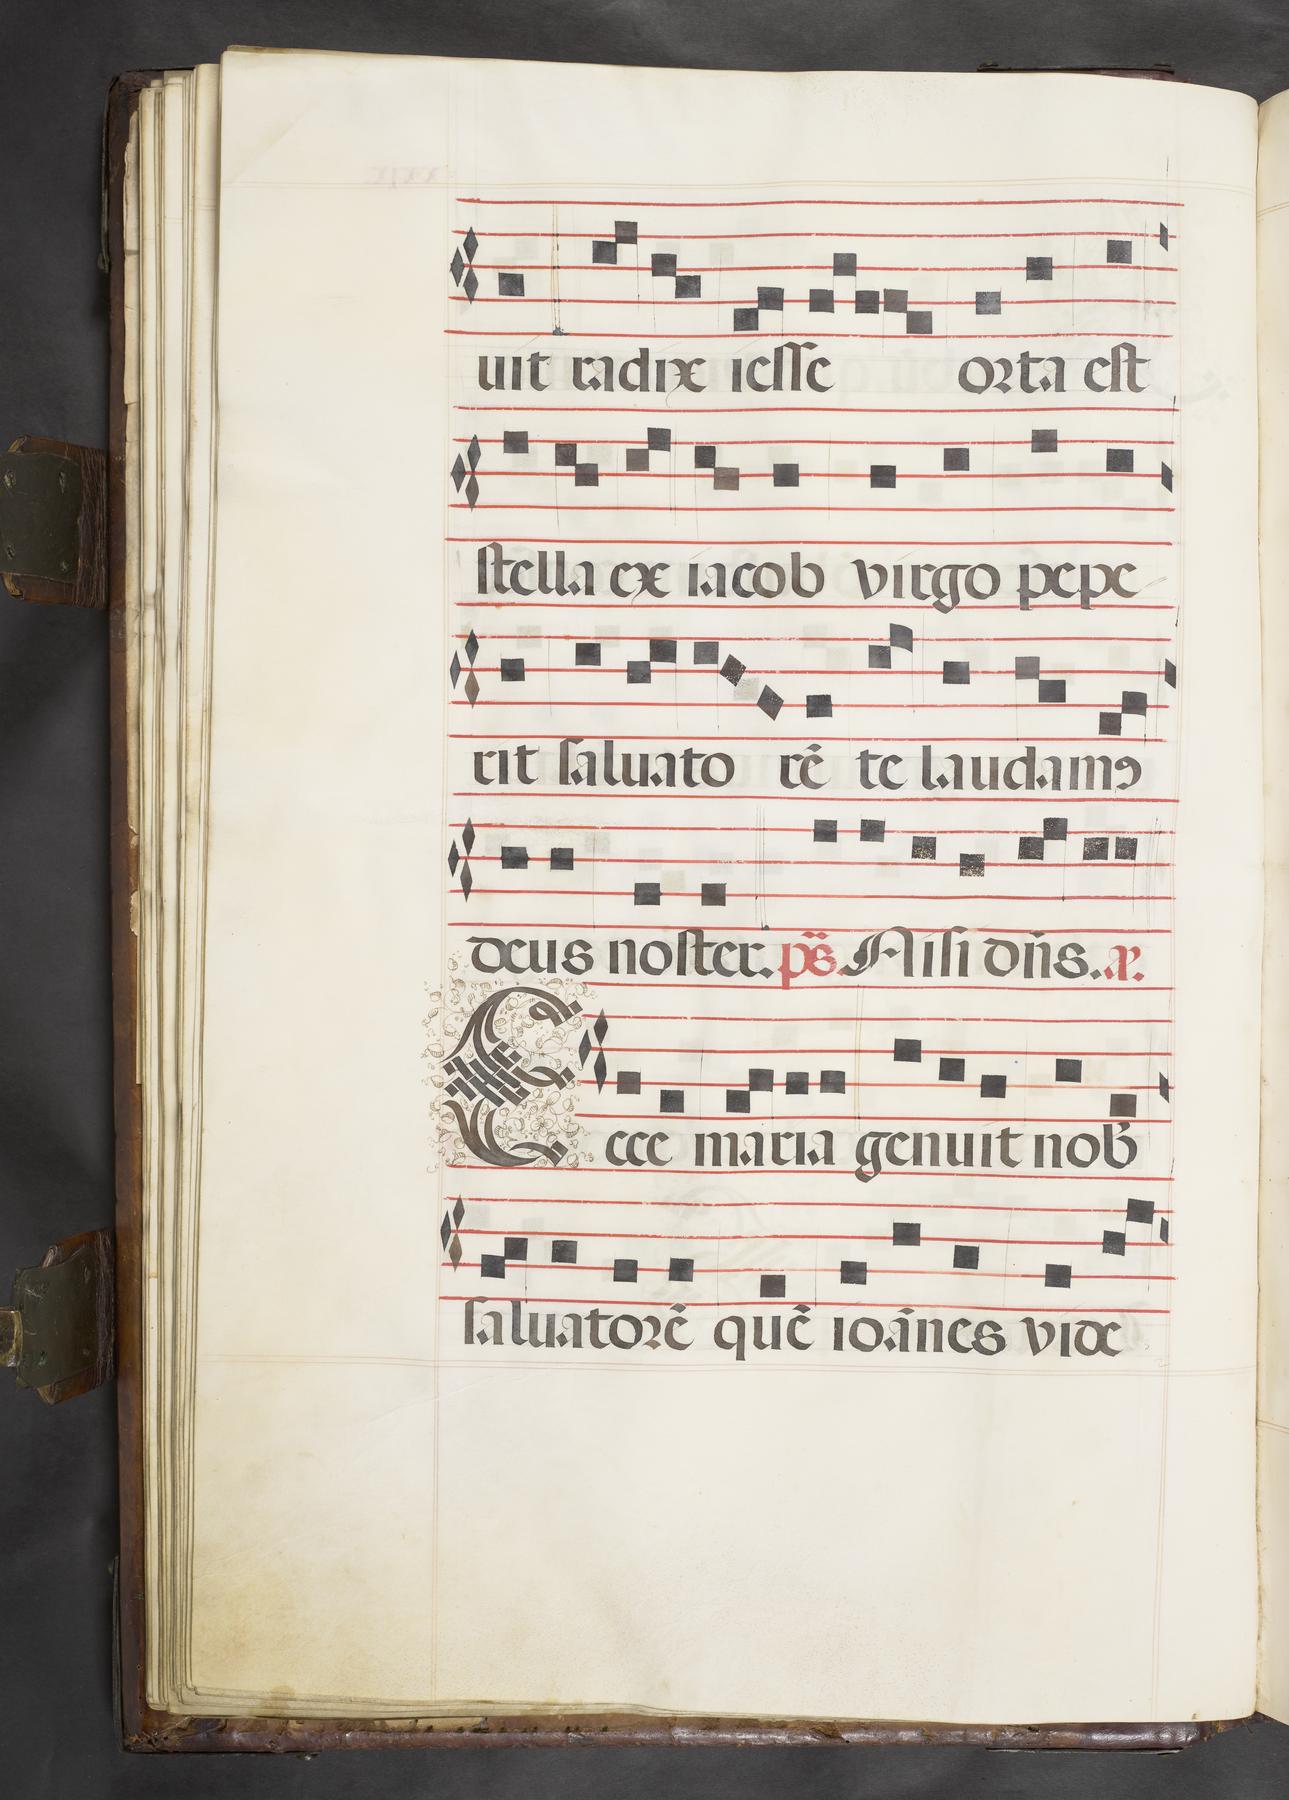 uit radix iesse orta est
stella ex iacob virgo pepe
rit saluato rē te laudamꝰ
deus noster. ps̄. Nisi dn̄s. añ.
Ecce maria genuit nob̄
saluatorē quē ioānes vide